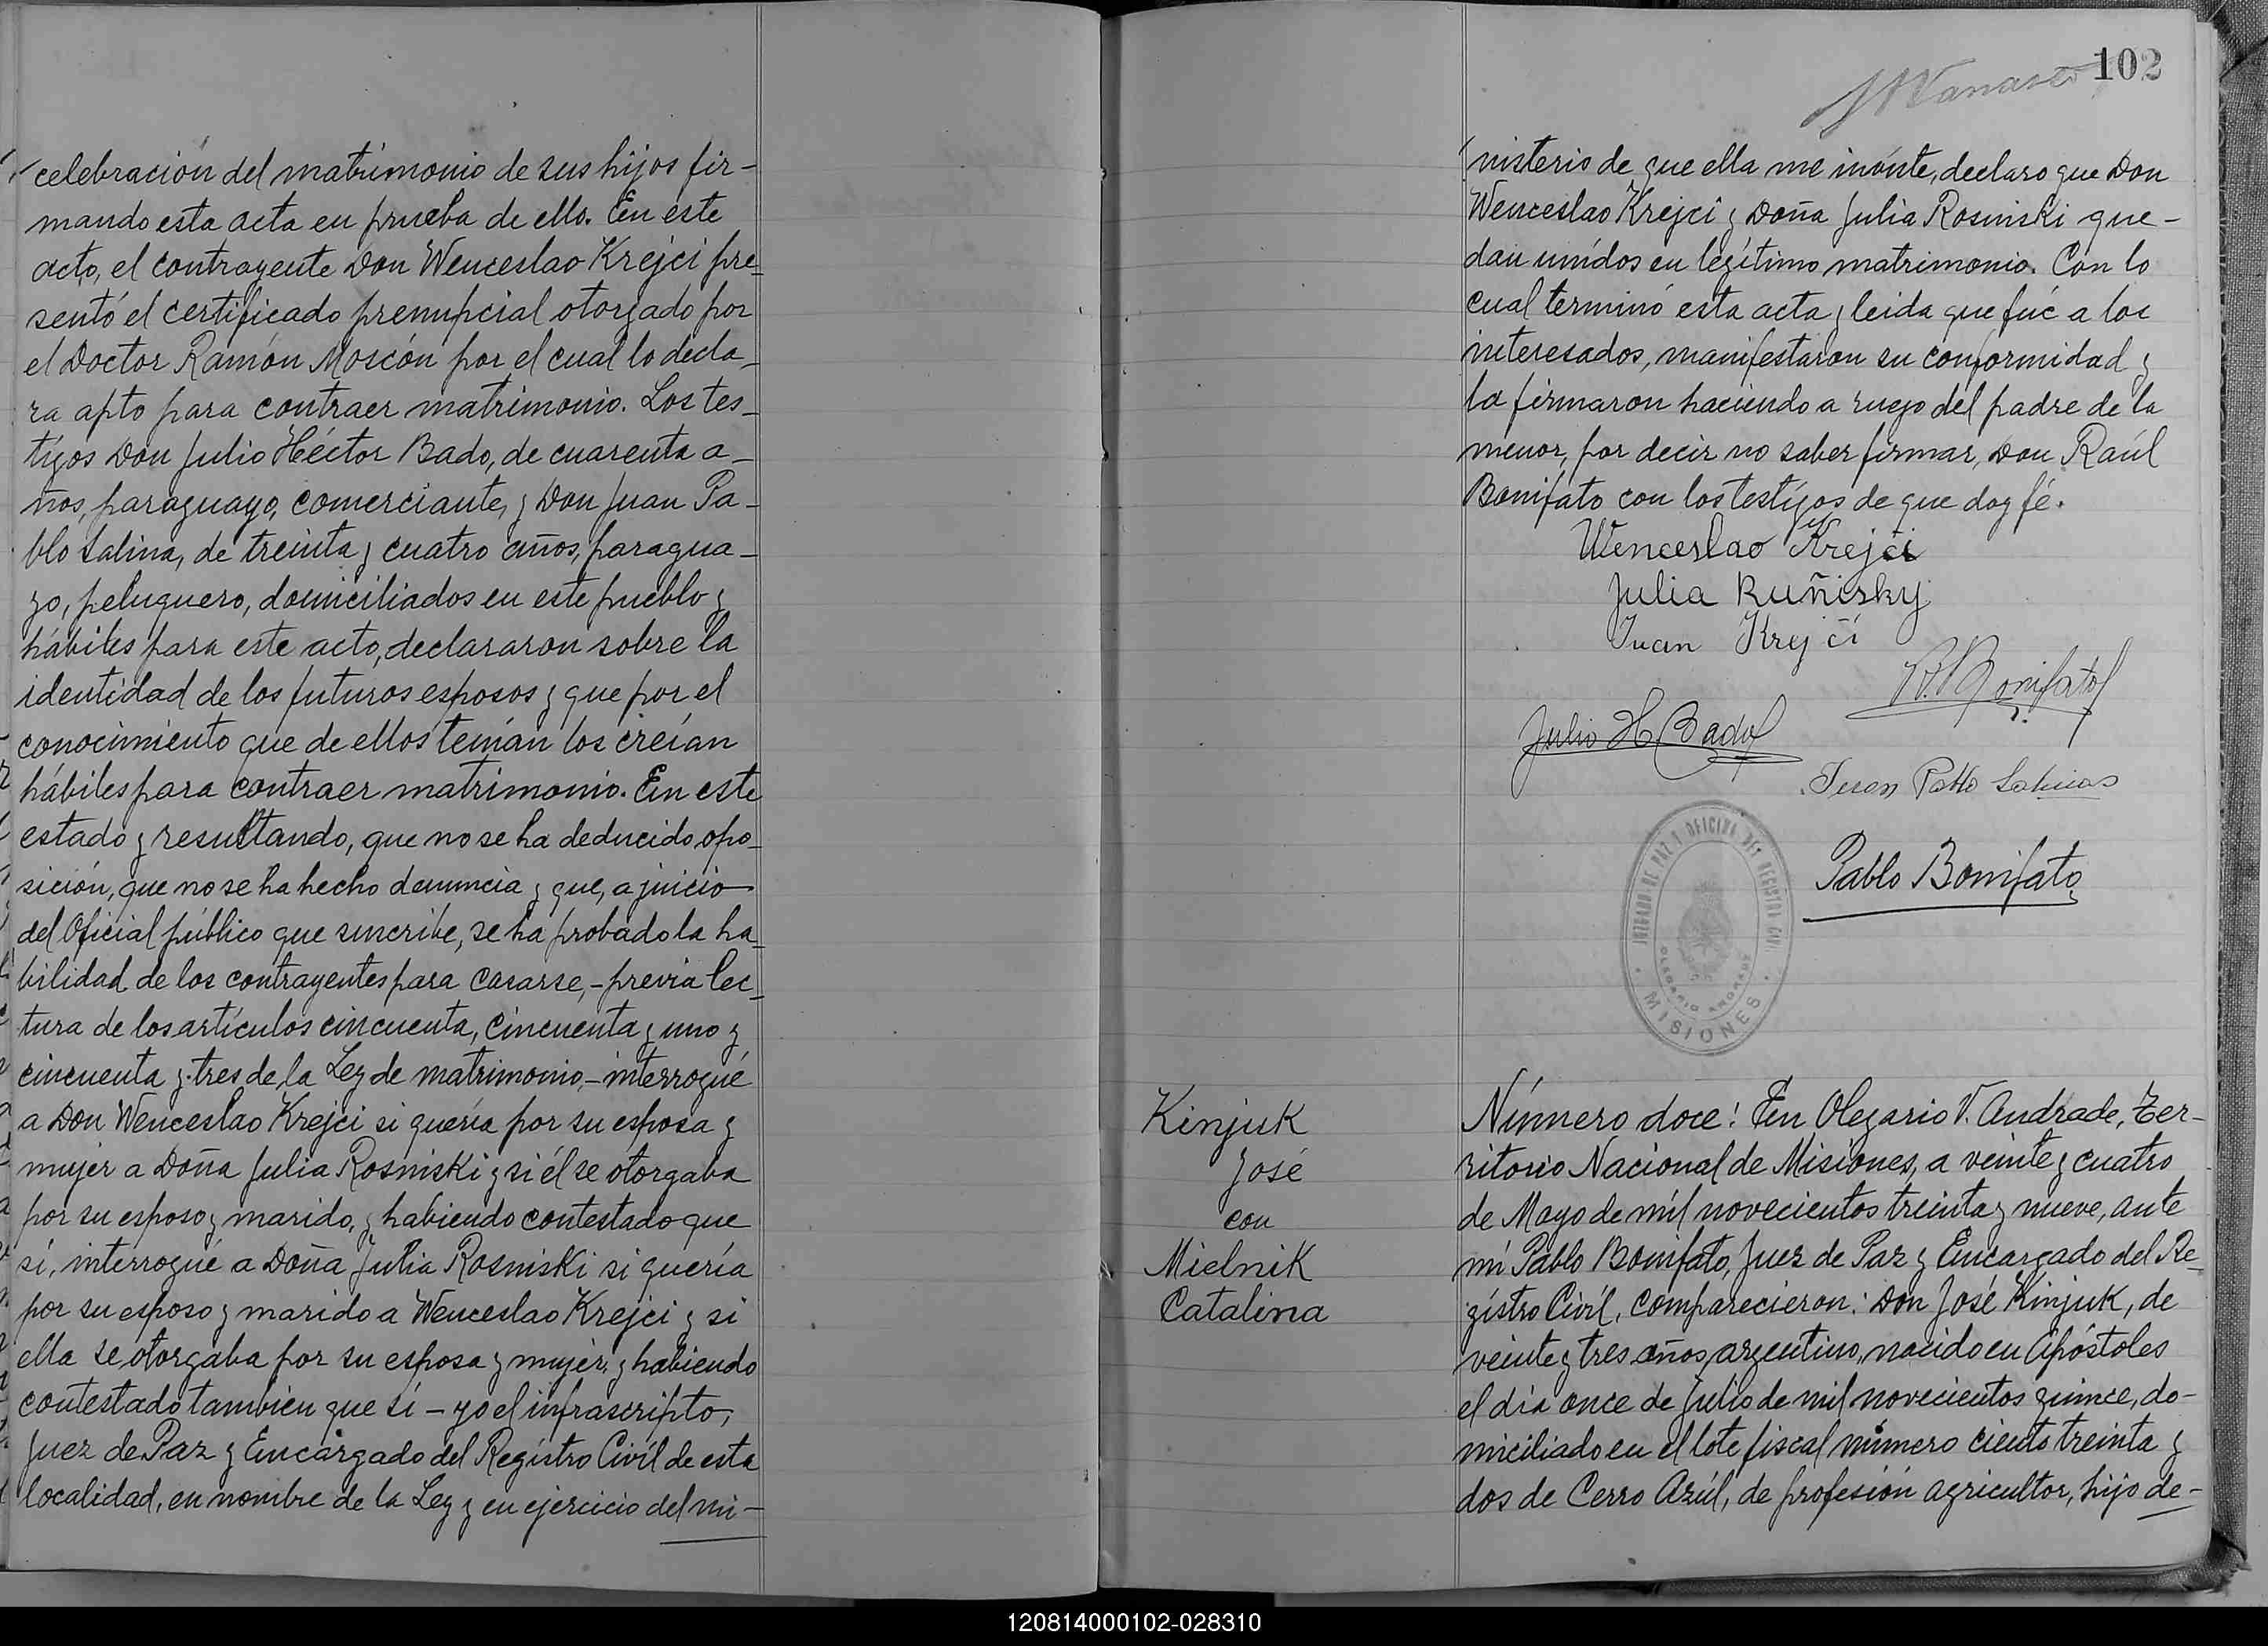 celebración del matrimonio de sus hijos fir-
mando esta acta en prueba de ello. En este
acto, el contrayente Don Wenceslao Krejci pre-
sentó el certificado prenupcial otorgado por
el Doctor Ramón Moscón por el cual lo decla-
ra apto para contraer matrimonio. Los tes-
tigos Don Julio Héctor Bado, de cuarenta a-
ños, paraguayo, comerciante, y Don Juan Pa-
blo Salina, de treinta y cuatro años, paragua-
yo, peluquero, domiciliados en este pueblo y
hábiles para este acto, declararon sobre la
identidad de los futuros esposos y que por el
conocimiento que de ellos tenían los creían
hábiles para contraer matrimonio. En este
estado y resultando, que no se ha deducido opo-
sición, que no se ha hecho denuncia y que, a juicio
del Oficial público que suscribe, se ha probado la ha-
bilidad de los contrayentes para casarse, - previa lec-
tura de los artículos cincuenta, cincuenta y uno y
cincuenta y tres de la Ley de matrimonio, - interrogué
a Don Wenceslao Krejci si quería por su esposa y
mujer a Doña Julia Rosniski y si él se otorgaba
por su esposo y marido, y habiendo contestado que
sí, interrogué a Doña Julia Rosniski si quería
por su esposo y marido a Wenceslao Krejci y si
ella se otorgaba por su esposa y mujer, y habiendo
contestado también que sí - yo el infrascripto,
Juez de Paz y Encargado del Registro Civil de esta
localidad, en nombre de la Ley y en ejercicio del mi-
102
nisterio de que ella me inviste, declaro que Don
Wenceslao Krejci y Doña Julia Rosniski que-
dan unidos en legítimo matrimonio. Con lo
cual terminó esta acta y leída que fué a los
interesados, manifestaron su conformidad y
la firmaron haciendo a ruego del padre de la
menor, por decir no saber firmar, Don Raúl
Bonifato con los testigos de que doy fé.
Wenceslao Krejci
Julia Ruñisky
Juan Krejčí
R. Bonifato
Julio H Bado
Juan Pablo Salinas
Pablo Bonifato
JUZGADO DE PAZ Y OFICINA DEL REGISTRO CIVIL
OLEGARIO ANDRADE
MISIONES
Kinjuk
José
con
Mielnik
Catalina
Número doce: En Olegario V. Andrade, Ter-
ritorio Nacional de Misiones, a veinte y cuatro
de Mayo de mil novecientos treinta y nueve, ante
mí Pablo Bonifato, Juez de Paz y Encargado del Re-
gistro Civil, comparecieron: Don José Kinjuk, de
veinte y tres años, argentino, nacido en Apóstoles
el día once de Julio de mil novecientos quince, do-
miciliado en el lote fiscal número ciento treinta y
dos de Cerro Azúl, de profesión agricultor, hijo de-
120814000102-028310